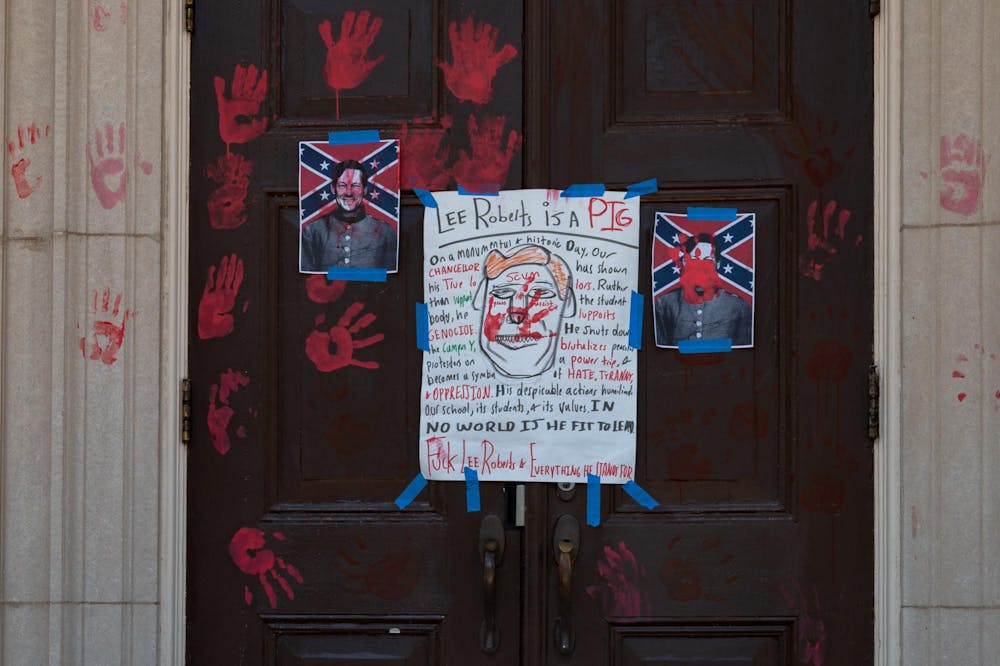 LEE ROBERTS IS A PIG
On a monumental & historic Day, Our
CHANCELLOR has shown
his True lors. Rather
than the student
body, he supports
GENOCIDE. He shuts down
the campus Y, brutalizes
protestors on a power trip, &
becomes a symbol of HATE, TYRANNY,
& OPPRESSION. His despicable actions
Our school, its students, & its values. IN
NO WORLD IS HE FIT TO LEAD
Fuck Lee Roberts & Everything He Stands For
SCUM